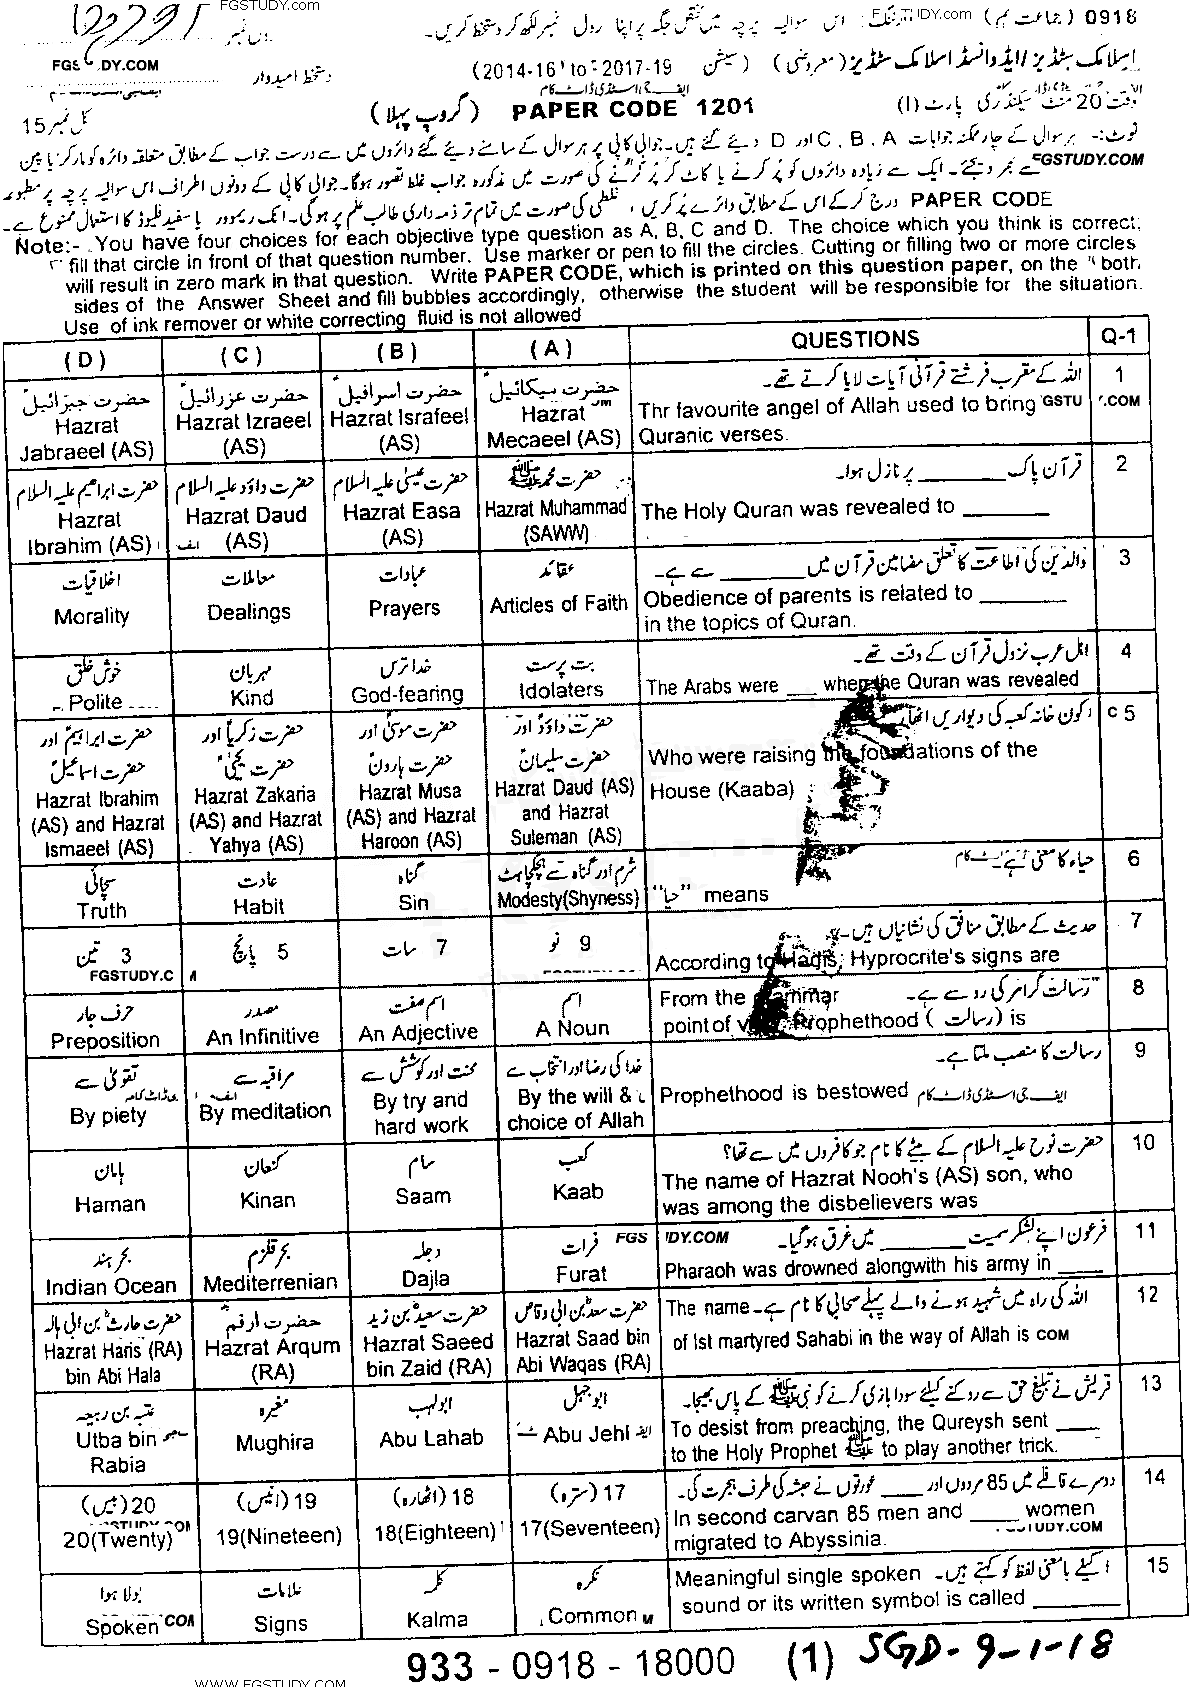 FGSTUDY.COM
0918 (جماعت نہم) وارننگ: اس سوالیہ پرچہ میں مختص جگہ پر اپنا رول نمبر لکھ کر دستخط کریں۔ رول نمبر
FGSTUDY.com
اسلامک سٹڈیز / ایڈوانسڈ اسلامک سٹڈیز (معروضی) (سیشن 2014-16 to 2017-19) دستخط امیدوار
وقت 20 منٹ سیکنڈری پارٹ (I) PAPER CODE 1201 (گروپ پہلا) کل نمبر 15
نوٹ:- ہر سوال کے چار ممکنہ جوابات A ، B ، C اور D دیئے گئے ہیں۔ جوابی کاپی پر ہر سوال کے سامنے دیئے گئے دائروں میں سے درست جواب کے مطابق متعلقہ دائرہ کو مارکر یا پین
سے بھر دیجئے۔ ایک سے زیادہ دائروں کو پُر کرنے یا کاٹ کر پُر کرنے کی صورت میں مذکورہ جواب غلط تصور ہوگا۔ جوابی کاپی کے دونوں اطراف اس سوالیہ پرچہ پر مطبوعہ
PAPER CODE درج کر کے اس کے مطابق دائرے پُر کریں ، غلطی کی صورت میں تمام تر ذمہ داری طالب علم پر ہوگی۔ انک ریموور یا سفید فلیوڈ کا استعمال ممنوع ہے۔
Note:- You have four choices for each objective type question as A, B, C and D. The choice which you think is correct;
fill that circle in front of that question number. Use marker or pen to fill the circles. Cutting or filling two or more circles
will result in zero mark in that question. Write PAPER CODE, which is printed on this question paper, on the both
sides of the Answer Sheet and fill bubbles accordingly, otherwise the student will be responsible for the situation.
Use of ink remover or white correcting fluid is not allowed
(D) (C) (B) (A) QUESTIONS Q-1
حضرت جبرائیل حضرت عزرائیل حضرت اسرافیل حضرت میکائیل اللہ کے مقرب فرشتے قرآنی آیات لایا کرتے تھے۔ 1
Hazrat Jabraeel (AS) Hazrat Izraeel (AS) Hazrat Israfeel (AS) Hazrat Mecaeel (AS) Thr favourite angel of Allah used to bring
Quranic verses.
حضرت ابراہیم علیہ السلام حضرت داؤد علیہ السلام حضرت عیسیٰ علیہ السلام حضرت محمد ﷺ قرآن پاک ______ پر نازل ہوا۔ 2
Hazrat Ibrahim (AS) Hazrat Daud (AS) Hazrat Easa (AS) Hazrat Muhammad (SAWW) The Holy Quran was revealed to ______
اخلاقیات معاملات عبادات عقائد والدین کی اطاعت کا تعلق مضامین قرآن میں ______ سے ہے۔ 3
Morality Dealings Prayers Articles of Faith Obedience of parents is related to ______
in the topics of Quran.
خوش خلق مہربان خدا ترس بت پرست اہل عرب نزول قرآن کے وقت تھے۔ 4
Polite Kind God-fearing Idolaters The Arabs were ___ when the Quran was revealed
حضرت ابراہیم اور حضرت اسماعیل حضرت زکریا اور حضرت یحییٰ حضرت موسیٰ اور حضرت ہارون حضرت داؤد اور حضرت سلیمان کون خانہ کعبہ کی دیواریں 5
Hazrat Ibrahim (AS) and Hazrat Ismaeel (AS) Hazrat Zakaria (AS) and Hazrat Yahya (AS) Hazrat Musa (AS) and Hazrat Haroon (AS) Hazrat Daud (AS) and Hazrat Suleman (AS) Who were raising the foundations of the
House (Kaaba)
سچائی عادت گناہ شرم اور گناہ سے ہچکچاہٹ حیاء کا معنی ہے 6
Truth Habit Sin Modesty(Shyness) "حیا" means
3 تین 5 پانچ 7 سات 9 نو حدیث کے مطابق منافق کی نشانیاں ہیں۔ 7
According to Hadis, Hyprocrite's signs are
حرف جار مصدر اسم صفت اسم رسالت گرامر کی رو سے ہے۔ 8
Preposition An Infinitive An Adjective A Noun From the grammar
point of view, Prophethood (رسالت) is
تقویٰ سے مراقبہ سے محنت اور کوشش سے خدا کی رضا اور انتخاب سے رسالت کا منصب ملتا ہے۔ 9
By piety By meditation By try and hard work By the will & choice of Allah Prophethood is bestowed
ہامان کنعان سام کعب حضرت نوح علیہ السلام کے بیٹے کا نام جو کافروں میں سے تھا؟ 10
Haman Kinan Saam Kaab The name of Hazrat Nooh's (AS) son, who
was among the disbelievers was
بحر ہند بحر قلزم دجلہ فرات فرعون اپنے لشکر سمیت ______ میں غرق ہوگیا۔ 11
Indian Ocean Mediterrenian Dajla Furat Pharaoh was drowned alongwith his army in ____
حضرت حارث بن ابی ہالہ حضرت ارقم حضرت سعید بن زید حضرت سعد بن ابی وقاص اللہ کی راہ میں شہید ہونے والے پہلے صحابی کا نام ہے۔ The name 12
Hazrat Haris (RA) bin Abi Hala Hazrat Arqum (RA) Hazrat Saeed bin Zaid (RA) Hazrat Saad bin Abi Waqas (RA) of Ist martyred Sahabi in the way of Allah is
عتبہ بن ربیعہ مغیرہ ابولہب ابوجہل قریش نے تبلیغ حق سے روکنے کیلئے سودا بازی کرنے کو نبی ﷺ کے پاس بھیجا۔ 13
Utba bin Rabia Mughira Abu Lahab Abu Jehl To desist from preaching, the Qureysh sent ____
to the Holy Prophet ﷺ to play another trick.
20 (بیس) 19 (انیس) 18 (اٹھارہ) 17 (سترہ) دوسرے قافلے میں 85 مردوں اور ____ عورتوں نے حبشہ کی طرف ہجرت کی۔ 14
20(Twenty) 19(Nineteen) 18(Eighteen) 17(Seventeen) In second carvan 85 men and ____ women
migrated to Abyssinia.
بولا ہوا علامات کلمہ نکرہ اکیلے بامعنی لفظ کو کہتے ہیں۔ Meaningful single spoken 15
Spoken Signs Kalma Common sound or its written symbol is called ______
933 - 0918 - 18000 (1) SGD-9-1-18
WWW.FGSTUDY.COM